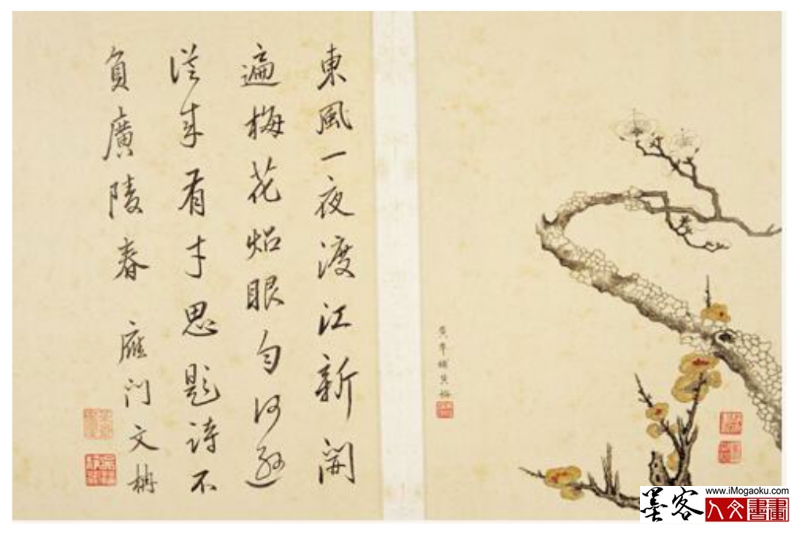 東風一夜渡江新開
遍梅花炤眼勻何遜
從來有才思題詩不
負廣陵春 雁門文柟
墨客
www.iMogaoku.com
人文書畫